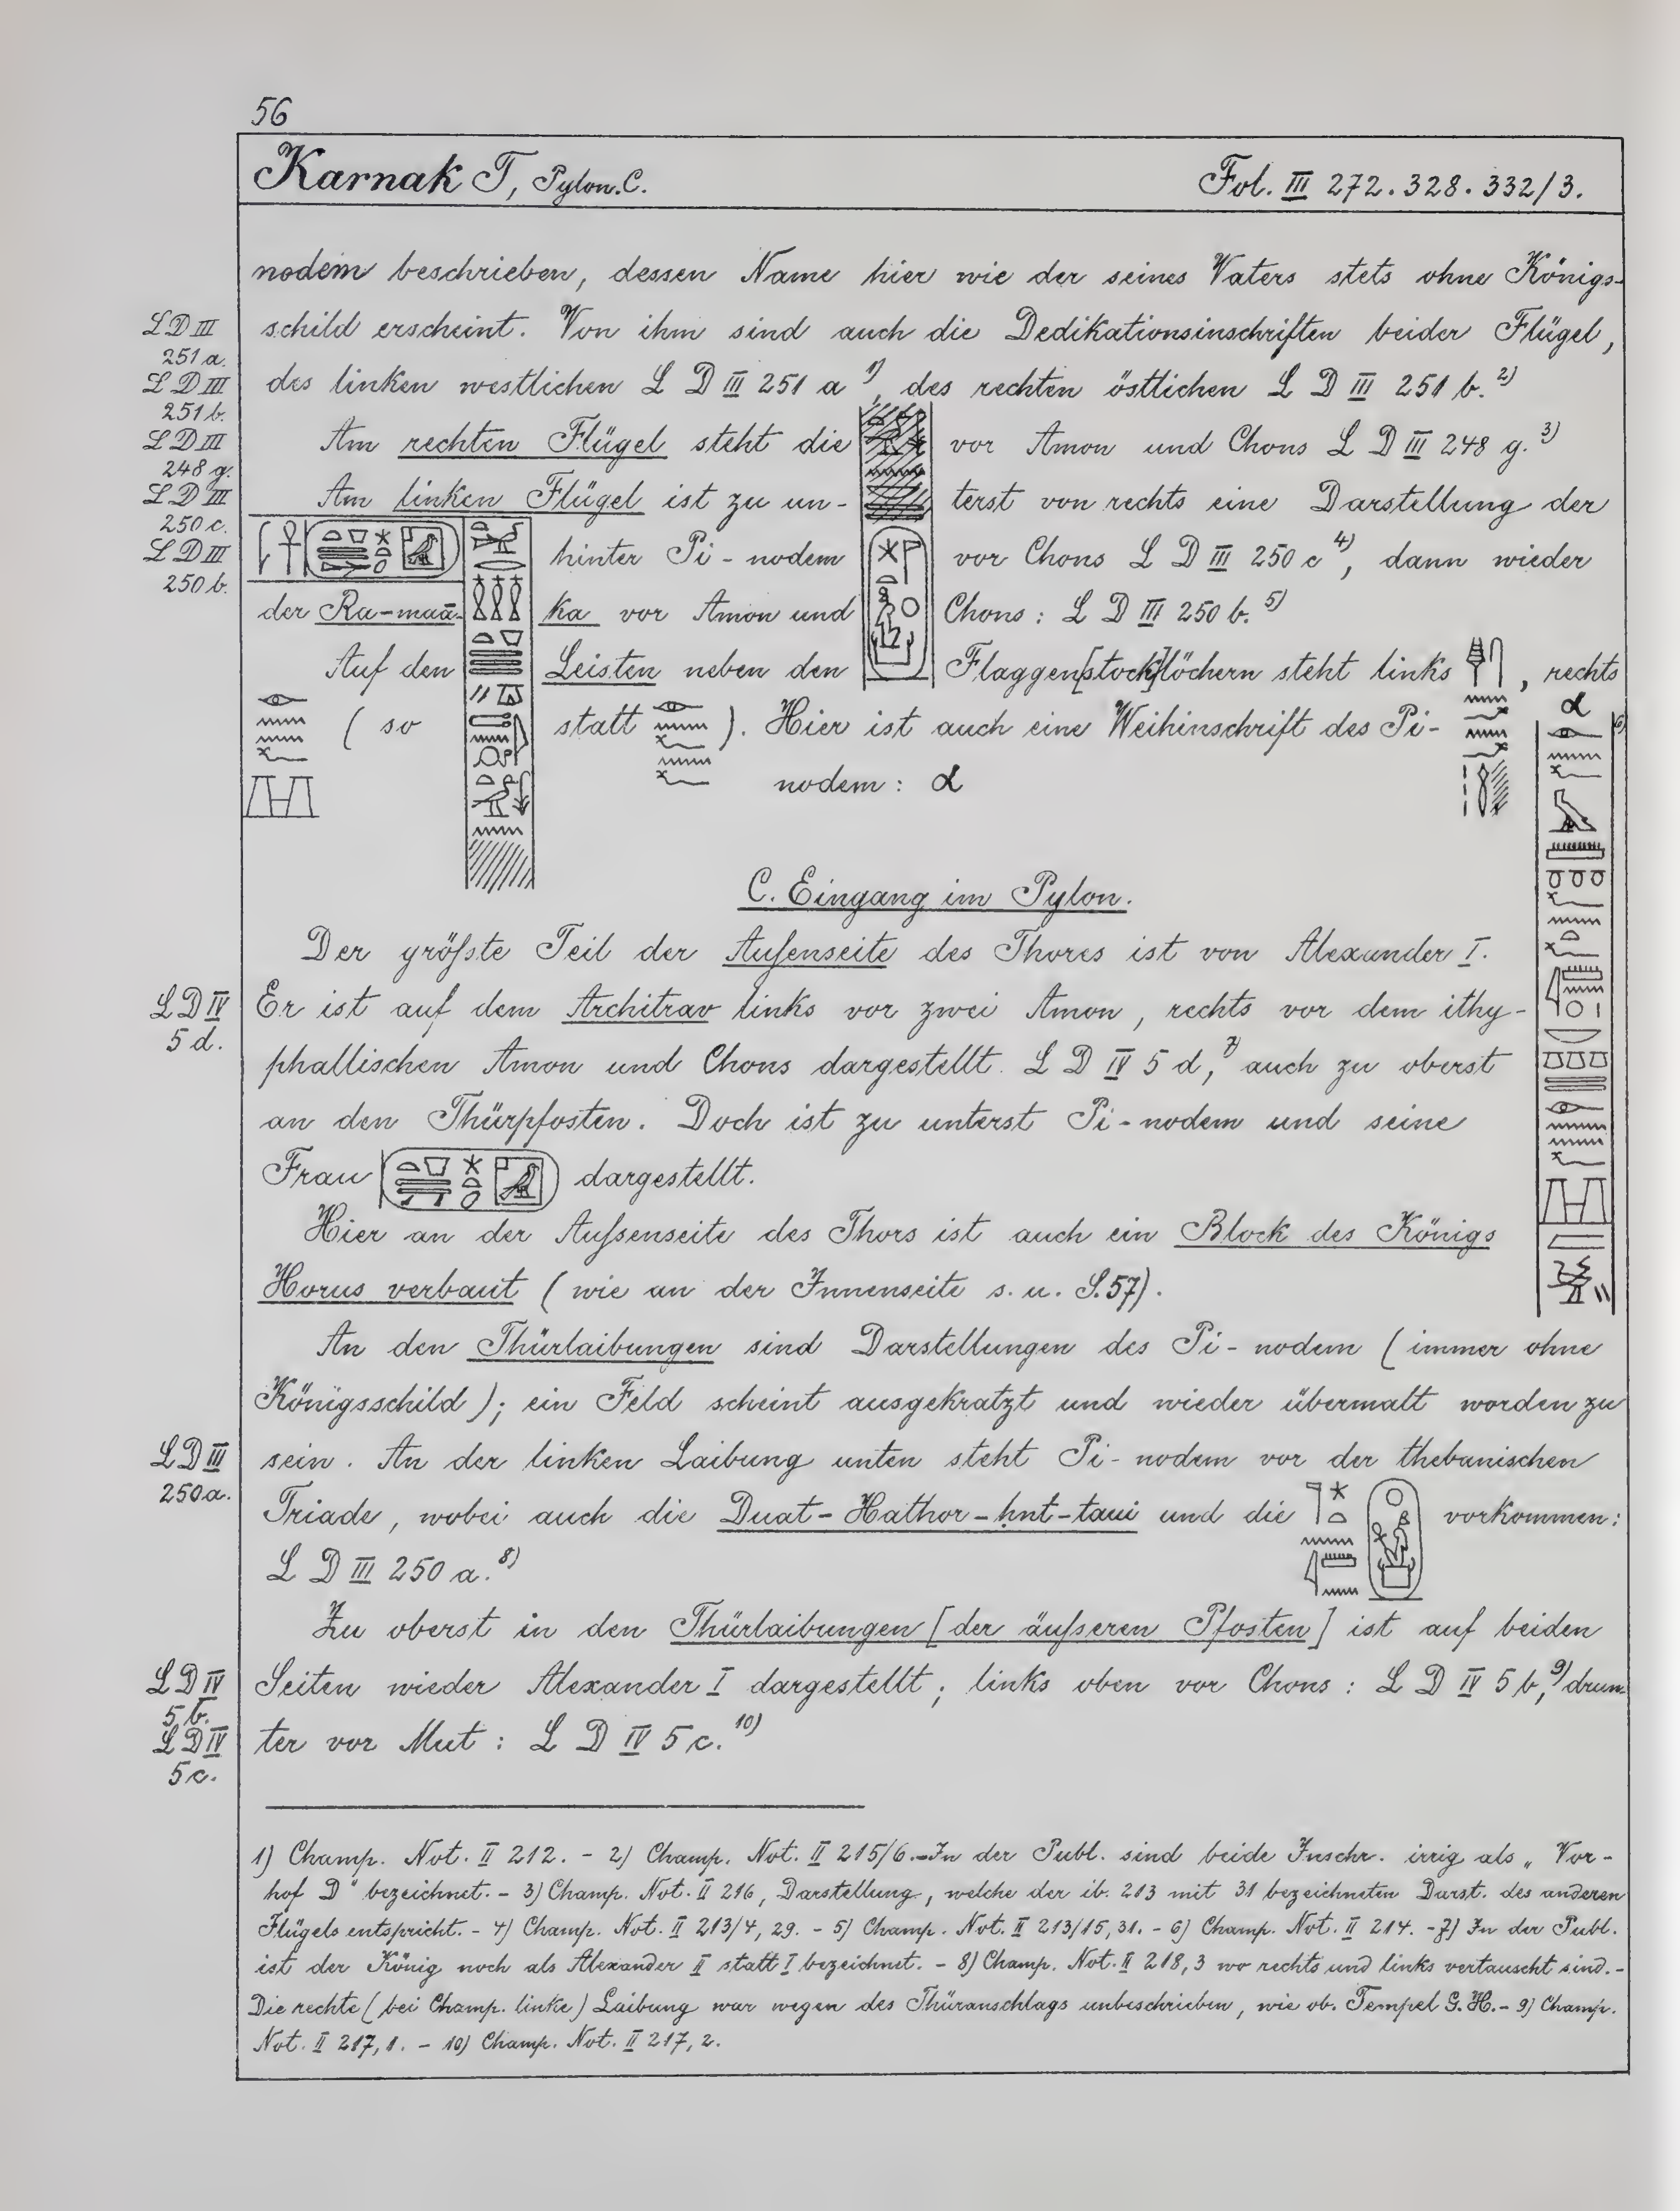 56
Karnak T, Pylon. C.
Fol. III 272. 328. 332/3.
nodem beschrieben, dessen Name hier wie der seines Vaters stets ohne Königs-
LD III 251 a.
schild erscheint. Von ihm sind auch die Dedikationsinschriften beider Flügel,
LD III 251 b.
des linken westlichen L D III 251 a 1), des rechten östlichen L D III 251 b. 2)
LD III 248 g.
Am rechten Flügel steht die vor Amon und Chons L D III 248 g. 3)
LD III 250 c.
Am linken Flügel ist zu un- terst von rechts eine Darstellung der
LD III 250 b.
hinter Pi-nodem vor Chons L D III 250 c 4), dann wieder
der Ra-maā- ka vor Amon und Chons: L D III 250 b. 5)
Auf den Leisten neben den Flaggen[stock]löchern steht links , rechts
( so statt ). Hier ist auch eine Weihinschrift des Pi- α 6)
nodem: α
C. Eingang im Pylon.
Der größte Teil der Außenseite des Thores ist von Alexander I.
LD IV 5 d.
Er ist auf dem Architrav links vor zwei Amon, rechts vor dem ithy-
phallischen Amon und Chons dargestellt. L D IV 5 d, 7) auch zu oberst
an den Thürpfosten. Doch ist zu unterst Pi-nodem und seine
Frau dargestellt.
Hier an der Außenseite des Thors ist auch ein Block des Königs
Horus verbaut (wie an der Innenseite s. u. S. 57).
An den Thürlaibungen sind Darstellungen des Pi-nodem (immer ohne
Königsschild); ein Feld scheint ausgekratzt und wieder übermalt worden zu
LD III 250 a.
sein. An der linken Laibung unten steht Pi-nodem vor der thebanischen
Triade, wobei auch die Duat-Hathor-ḥnt-taui und die vorkommen:
L D III 250 a. 8)
Zu oberst in den Thürlaibungen [der äußeren Pfosten] ist auf beiden
LD IV 5 b.
Seiten wieder Alexander I dargestellt; links oben vor Chons: L D IV 5 b, 9) drun-
LD IV 5 c.
ter vor Mut: L D IV 5 c. 10)
1) Champ. Not. II 212. - 2) Champ. Not. II 215/6. - In der Publ. sind beide Inschr. irrig als „Vor-
hof D" bezeichnet. - 3) Champ. Not. II 216, Darstellung, welche der ib. 213 mit 31 bezeichneten Darst. des anderen
Flügels entspricht. - 4) Champ. Not. II 213/4, 29. - 5) Champ. Not. II 213/15, 31. - 6) Champ. Not. II 214. - 7) In der Publ.
ist der König noch als Alexander II statt I bezeichnet. - 8) Champ. Not. II 218, 3 wo rechts und links vertauscht sind. -
Die rechte (bei Champ. linke) Laibung war wegen des Thüranschlags unbeschrieben, wie ob. Tempel G. H. - 9) Champ.
Not. II 217, 1. - 10) Champ. Not. II 217, 2.